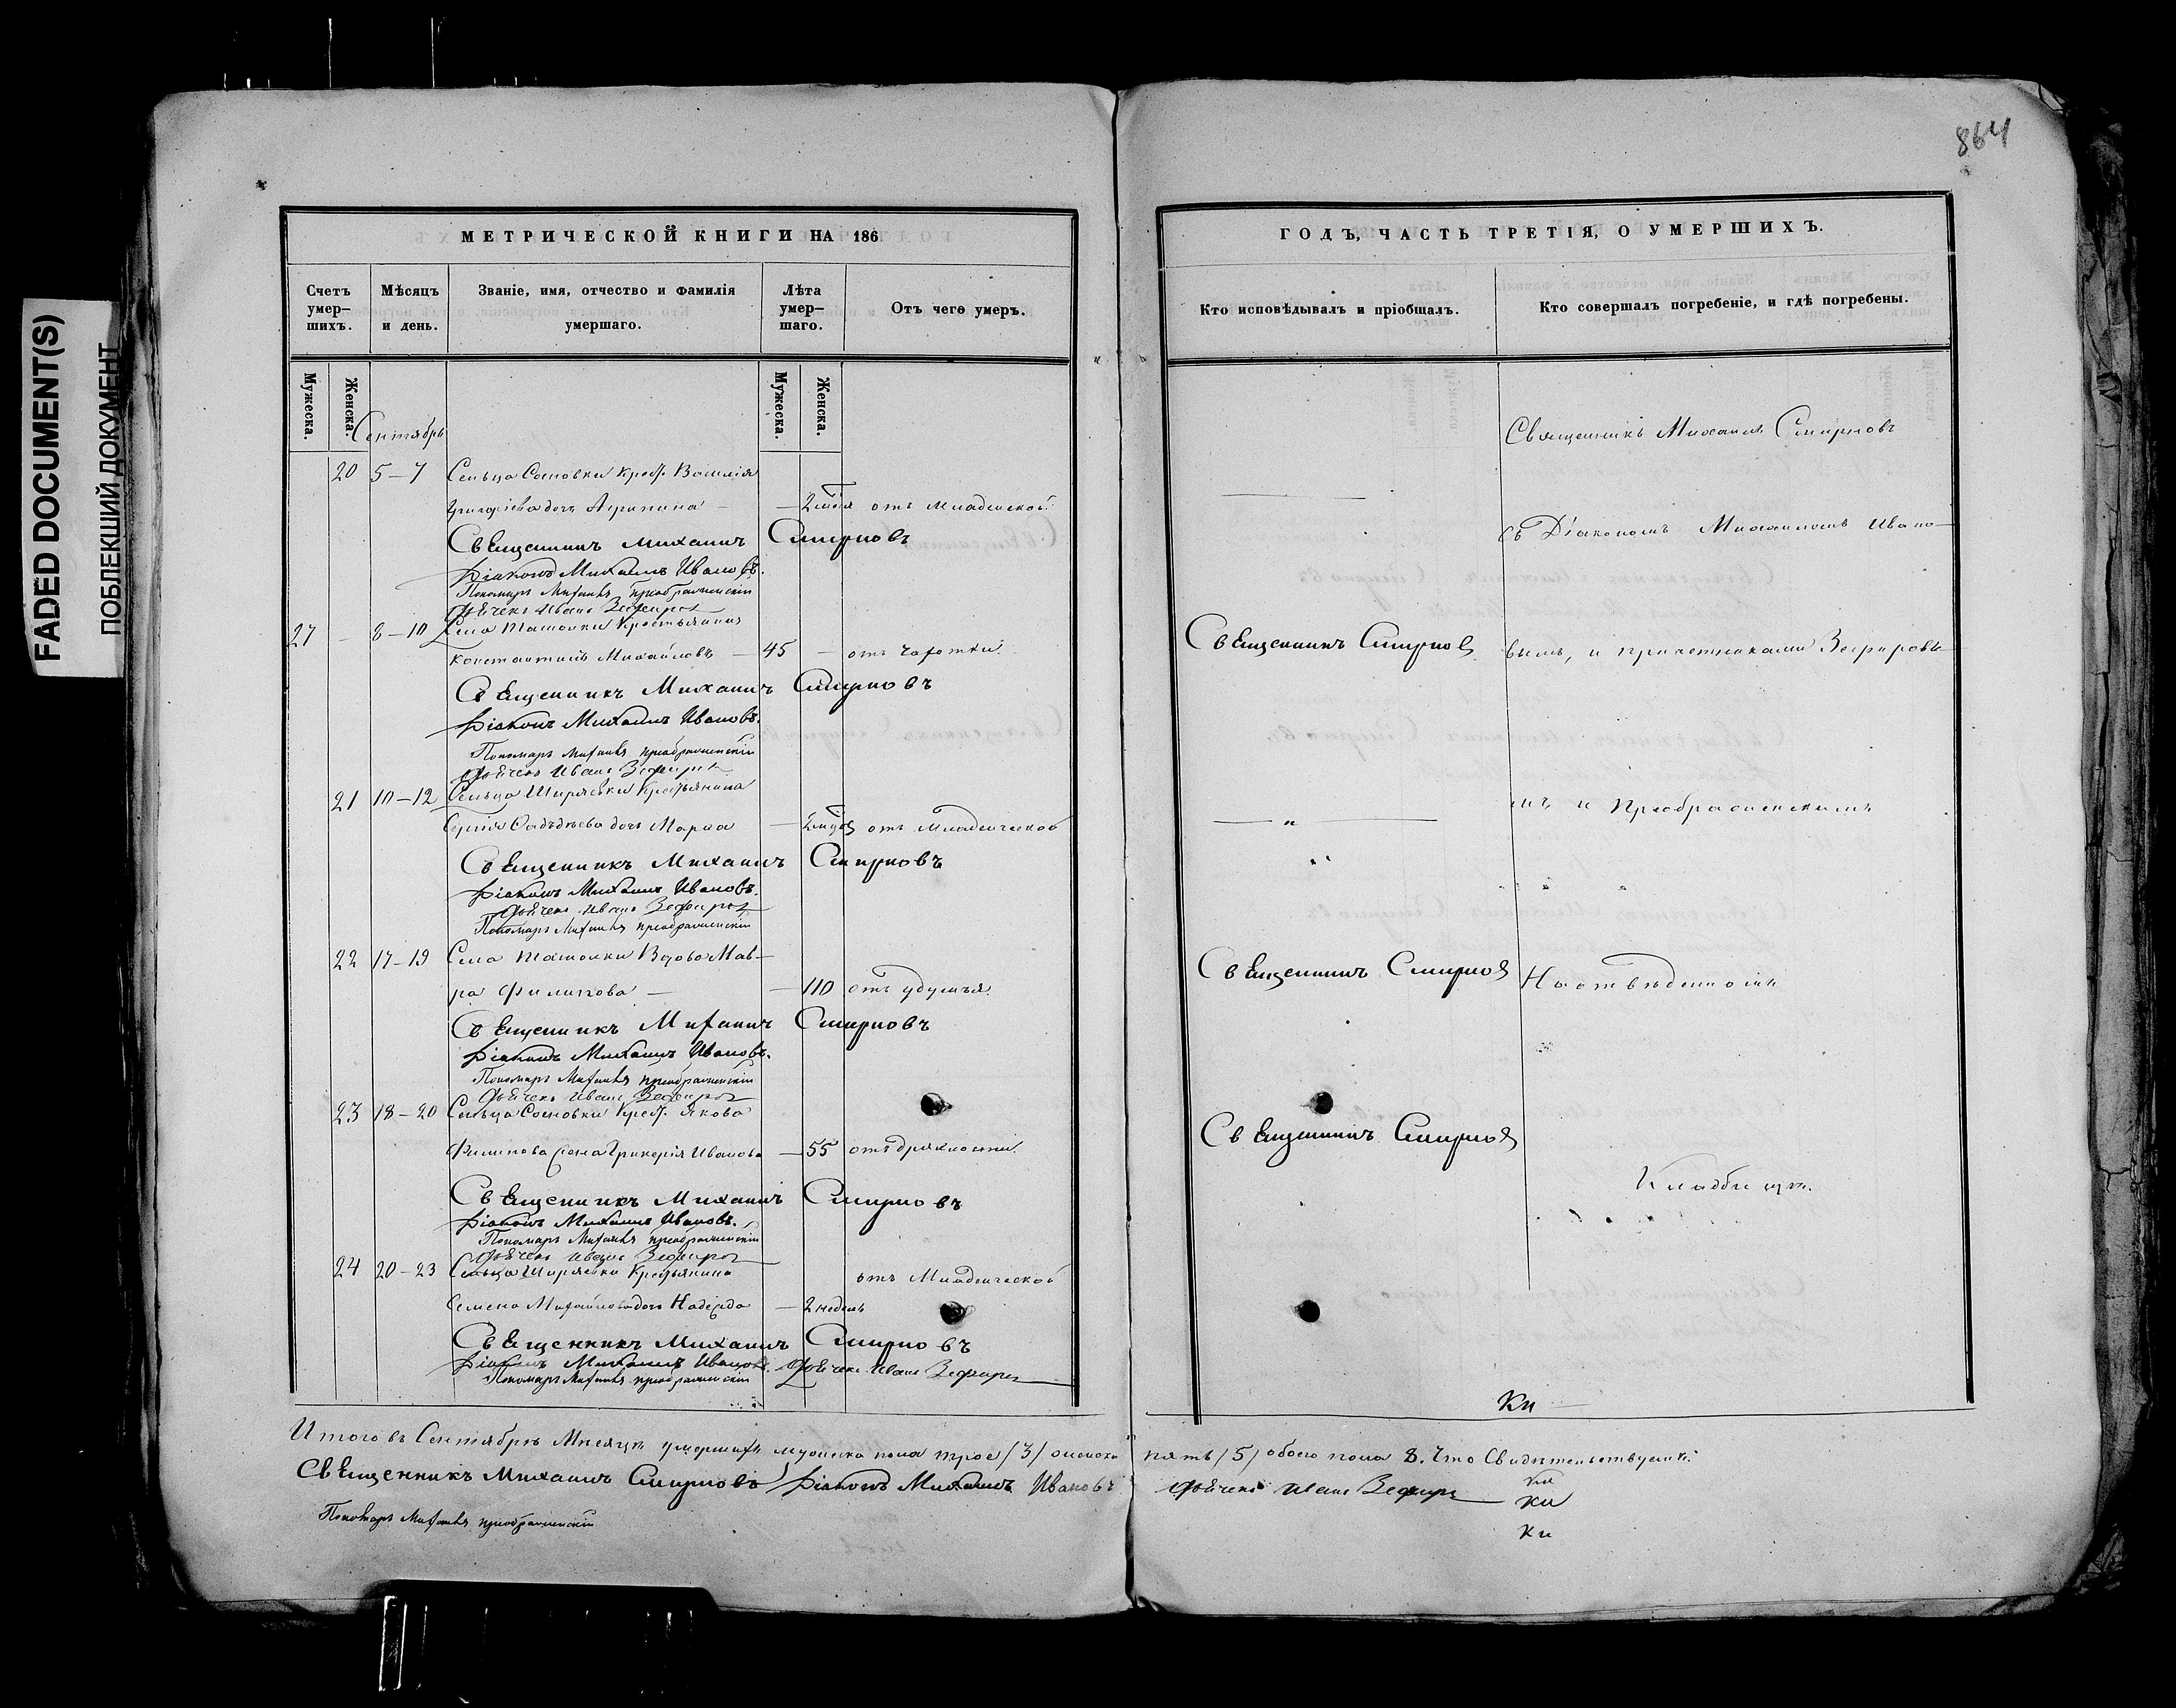 FADED DOCUMENT(S)
ПОБЛЕКШИЙ ДОКУМЕНТ
864
МЕТРИЧЕСКОЙ КНИГИ НА 186
Счетъ умер-шихъ.
Мѣсяцъ и день.
Званіе, имя, отчество и фамилія умершаго.
Лѣта умер-шаго.
Отъ чего умеръ.
Мужеска.
Женска.
Мужеска.
Женска.
Сентябрь
20 5–7 Сельца Сосновки Крест. Василія
Григорьева дочь Агрипина — — 2 отъ младенческой
Священникъ Михаилъ Смирновъ
Діаконъ Михаилъ Ивановъ.
Пономарь Михаилъ Преображенскій
Дьячекъ Иванъ Зефировъ
27 – 8–10 Села Ташолки Крестьянинъ
Константинъ Михайловъ — 45 – отъ чахотки.
Священникъ Михаилъ Смирновъ
Діаконъ Михаилъ Ивановъ.
Пономарь Михаилъ Преображенскій
Дьячекъ Иванъ Зефировъ
21 10–12 Сельца Ширяевки Крестьянина
Сергія дочь Марѳа — отъ младенческой
Священникъ Михаилъ Смирновъ
Діаконъ Михаилъ Ивановъ.
Дьячекъ Иванъ Зефировъ
Пономарь Михаилъ Преображенскій
22 17–19 Села Ташолки Вдова Мав-
ра Филипова — — 110 отъ удушья.
Священникъ Михаилъ Смирновъ
Діаконъ Михаилъ Ивановъ.
Пономарь Михаилъ Преображенскій
Дьячекъ Иванъ Зефировъ
23 18–20 Сельца Сосновки Крест. Якова
Филипова жена Гликерія Иванова — 55 отъ дряхлости.
Священникъ Михаилъ Смирновъ
Діаконъ Михаилъ Ивановъ.
Пономарь Михаилъ Преображенскій
Дьячекъ Иванъ Зефировъ
24 20–23 Сельца Ширяевки Крестьянина отъ Младенческой
Семена Михайлова дочь Надежда — 2 недель
Священникъ Михаилъ Смирновъ
Діаконъ Михаилъ Ивановъ. Дьячекъ Иванъ Зефировъ
Пономарь Михаилъ Преображенскій
Итого въ Сентябрѣ Мѣсяцѣ умершихъ мужеска пола трое /3/ женска
Священникъ Михаилъ Смирновъ Діаконъ Михаилъ Ивановъ
Пономарь Михаилъ Преображенскій
ГОДЪ, ЧАСТЬ ТРЕТІЯ, О УМЕРШИХЪ.
Кто исповѣдывалъ и пріобщалъ.
Кто совершалъ погребеніе, и гдѣ погребены.
Священникъ Михаилъ Смирновъ
съ Діакономъ Михаиломъ Ивано-
Священникъ Смирновъ
вымъ, и причетниками Зефировы-
мъ и Преображенскимъ
Священникъ Смирновъ
На отведенномъ
Священникъ Смирновъ
Кладбищѣ.
пять /5/ обоего пола 8. Что Свидѣтельствуемъ:
Дьячекъ Иванъ Зефировъ